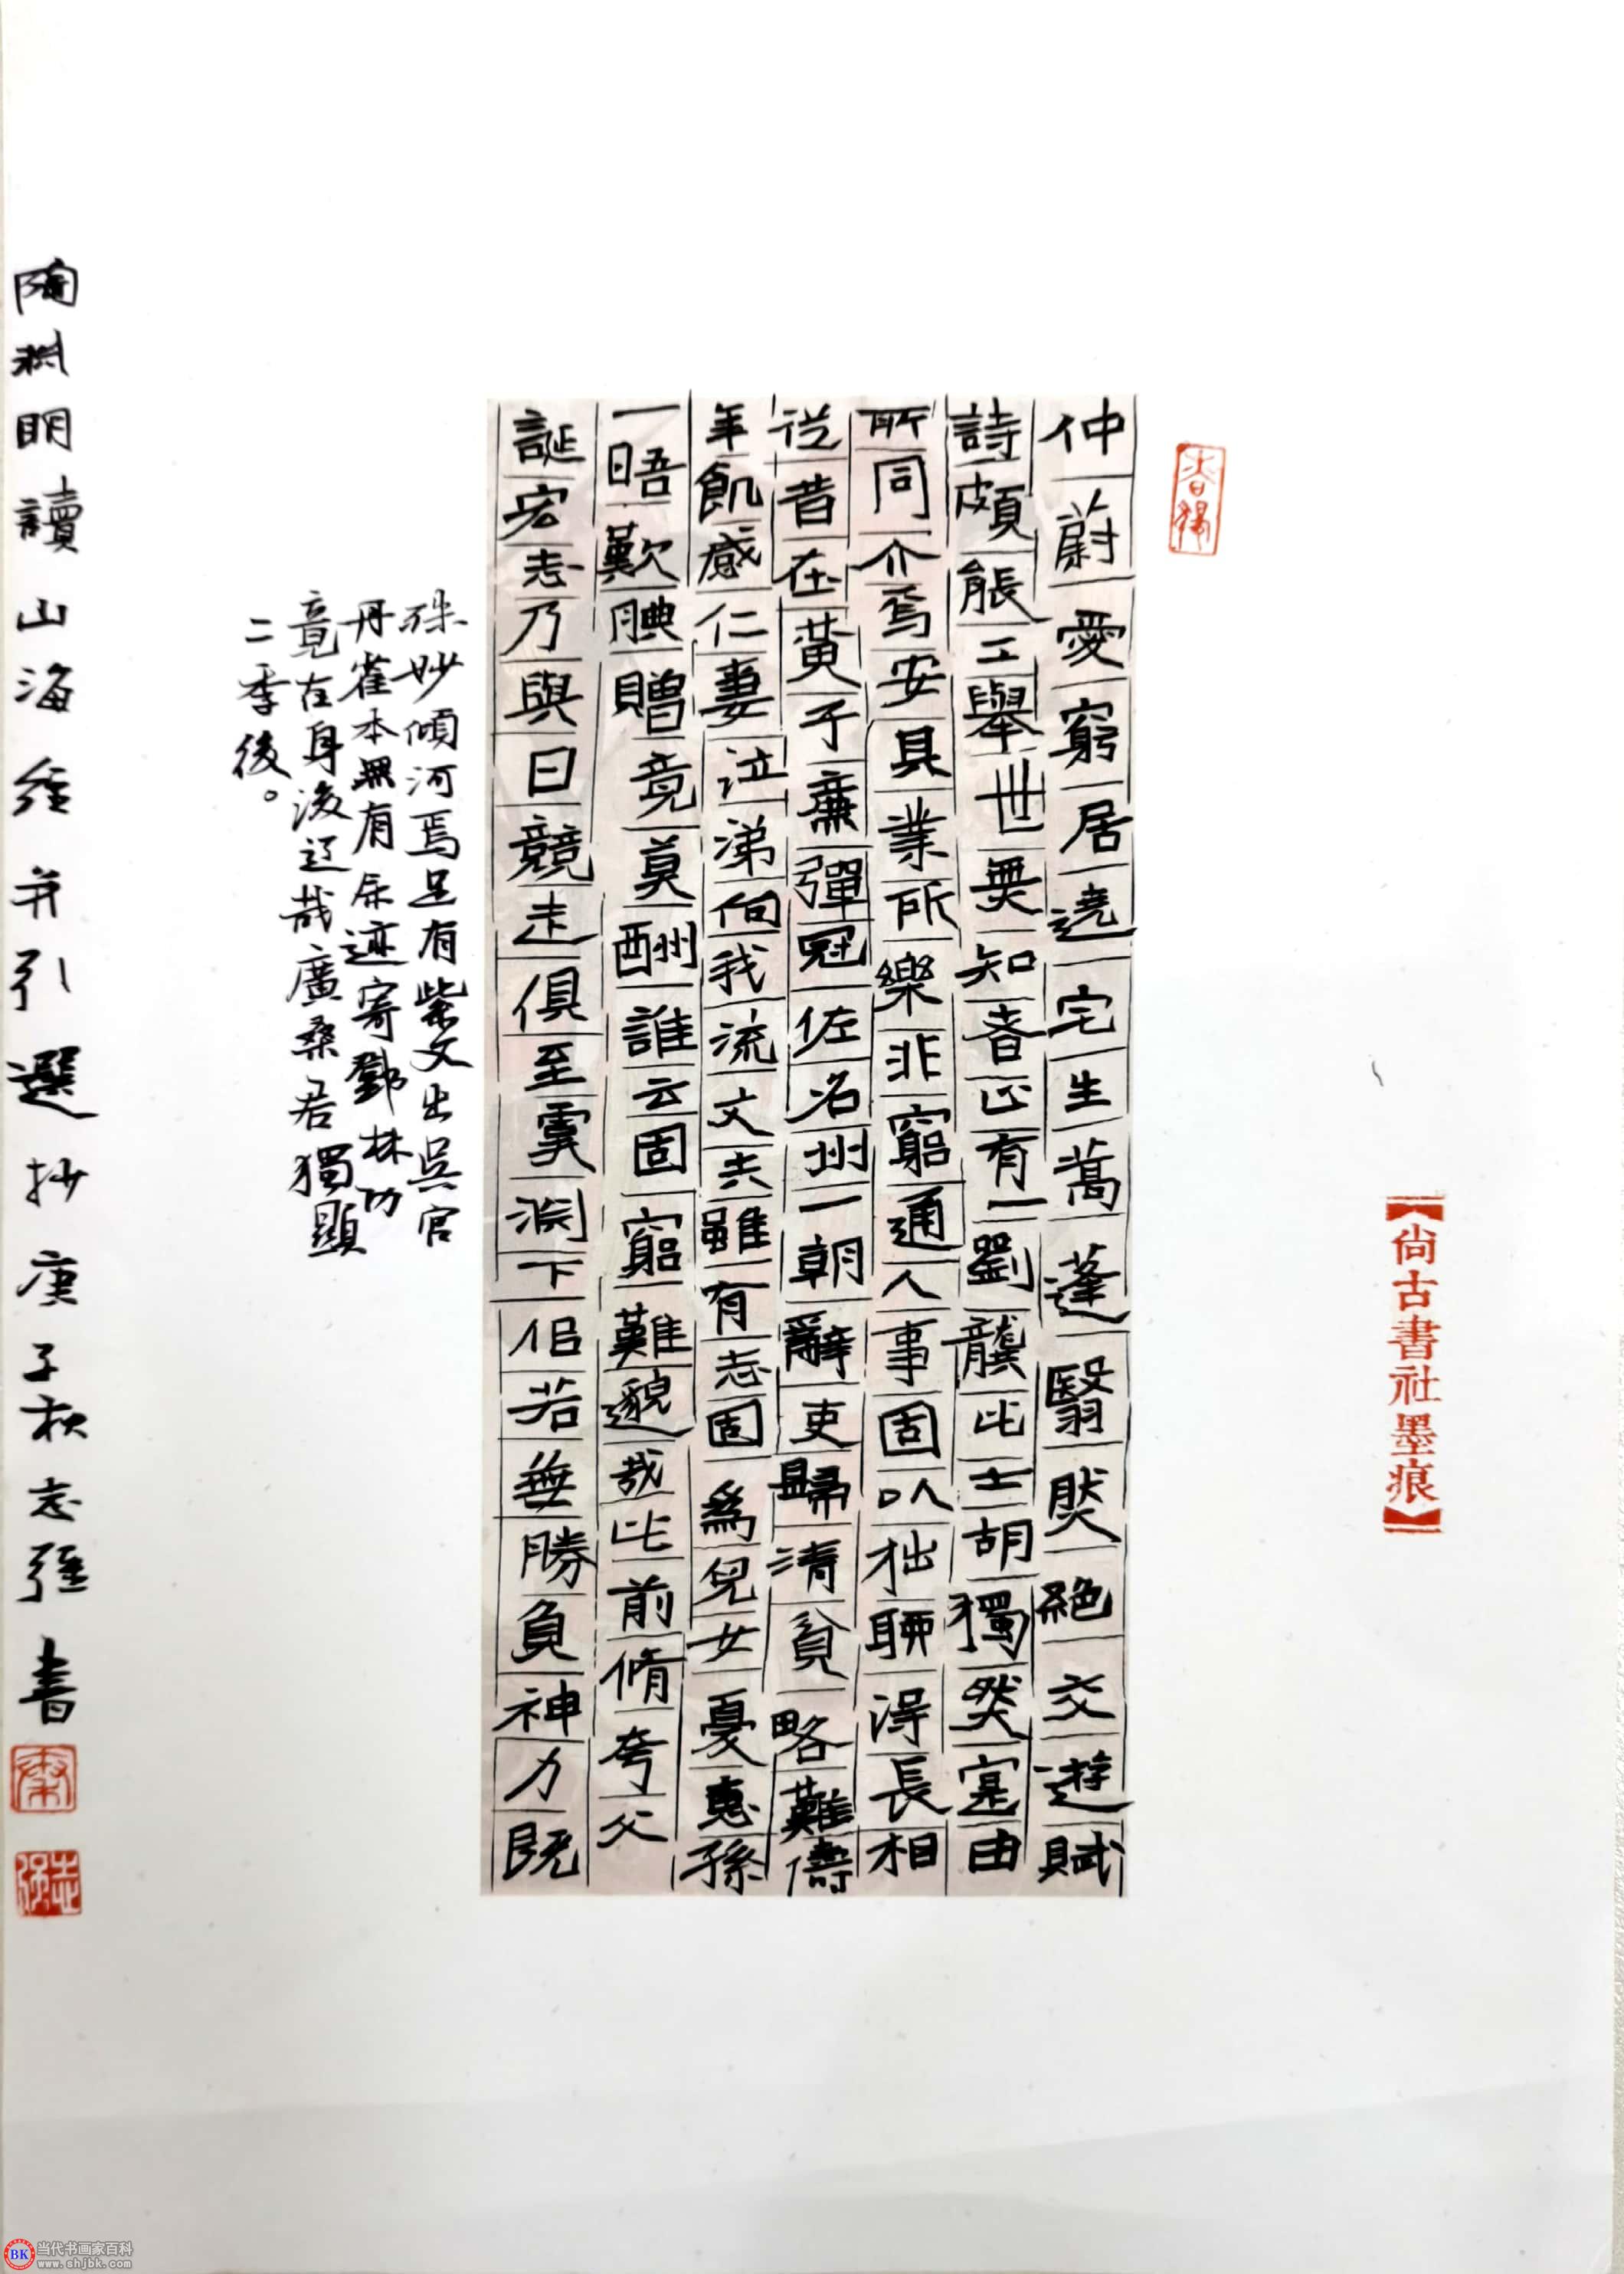 【尚古書社墨痕】
仲蔚愛窮居遶宅生蒿蓬翳然絕交遊賦
詩頗能工舉世無知者止有一劉龔此士胡獨然寔由
所同介焉安其業所樂非窮通人事固以拙聊得長相
從昔在黃子廉彈冠佐名州一朝辭吏歸清貧略難儔
年飢感仁妻泣涕向我流丈夫雖有志固為兒女憂惠孫
一晤歎腆贈竟莫酬誰云固窮難邈哉此前脩夸父
誕宏志乃與日競走俱至虞淵下侣若無勝負神力既
殊妙傾河焉足有紫文出吳宮
丹雀本無有余迹寄鄧林功
竟在身後迢哉廣桑君獨顯
二季後。
陶淵明讀山海經并引選抄庚子秋志强書
志强
BK 当代书画家百科
www.shjbk.com